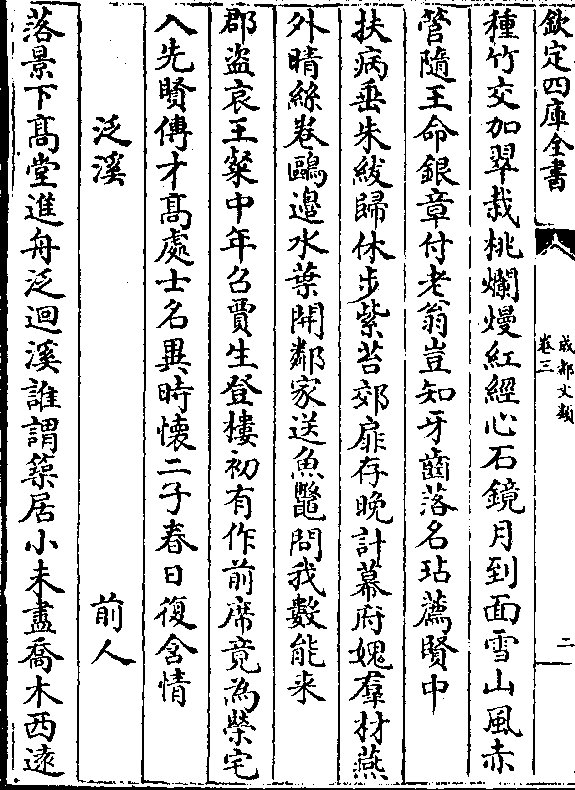 欽定四庫全書
成都文類
卷三
二
種竹交加翠栽桃爛熳紅經心石鏡月到面雪山風赤
管隨王命銀章付老翁豈知牙齒落名玷薦賢中
扶病垂朱紱歸休步紫苔郊扉存晚計幕府媿羣材燕
外晴絲卷鷗邊水葉開鄰家送魚鼈問我數能來
郡盗哀王粲中年召賈生登樓初有作前席竟為榮宅
入先賢傳才髙處士名異時懷二子春日復含情
泛溪　前人
落景下髙堂進舟泛迴溪誰謂築居小未盡喬木西逺